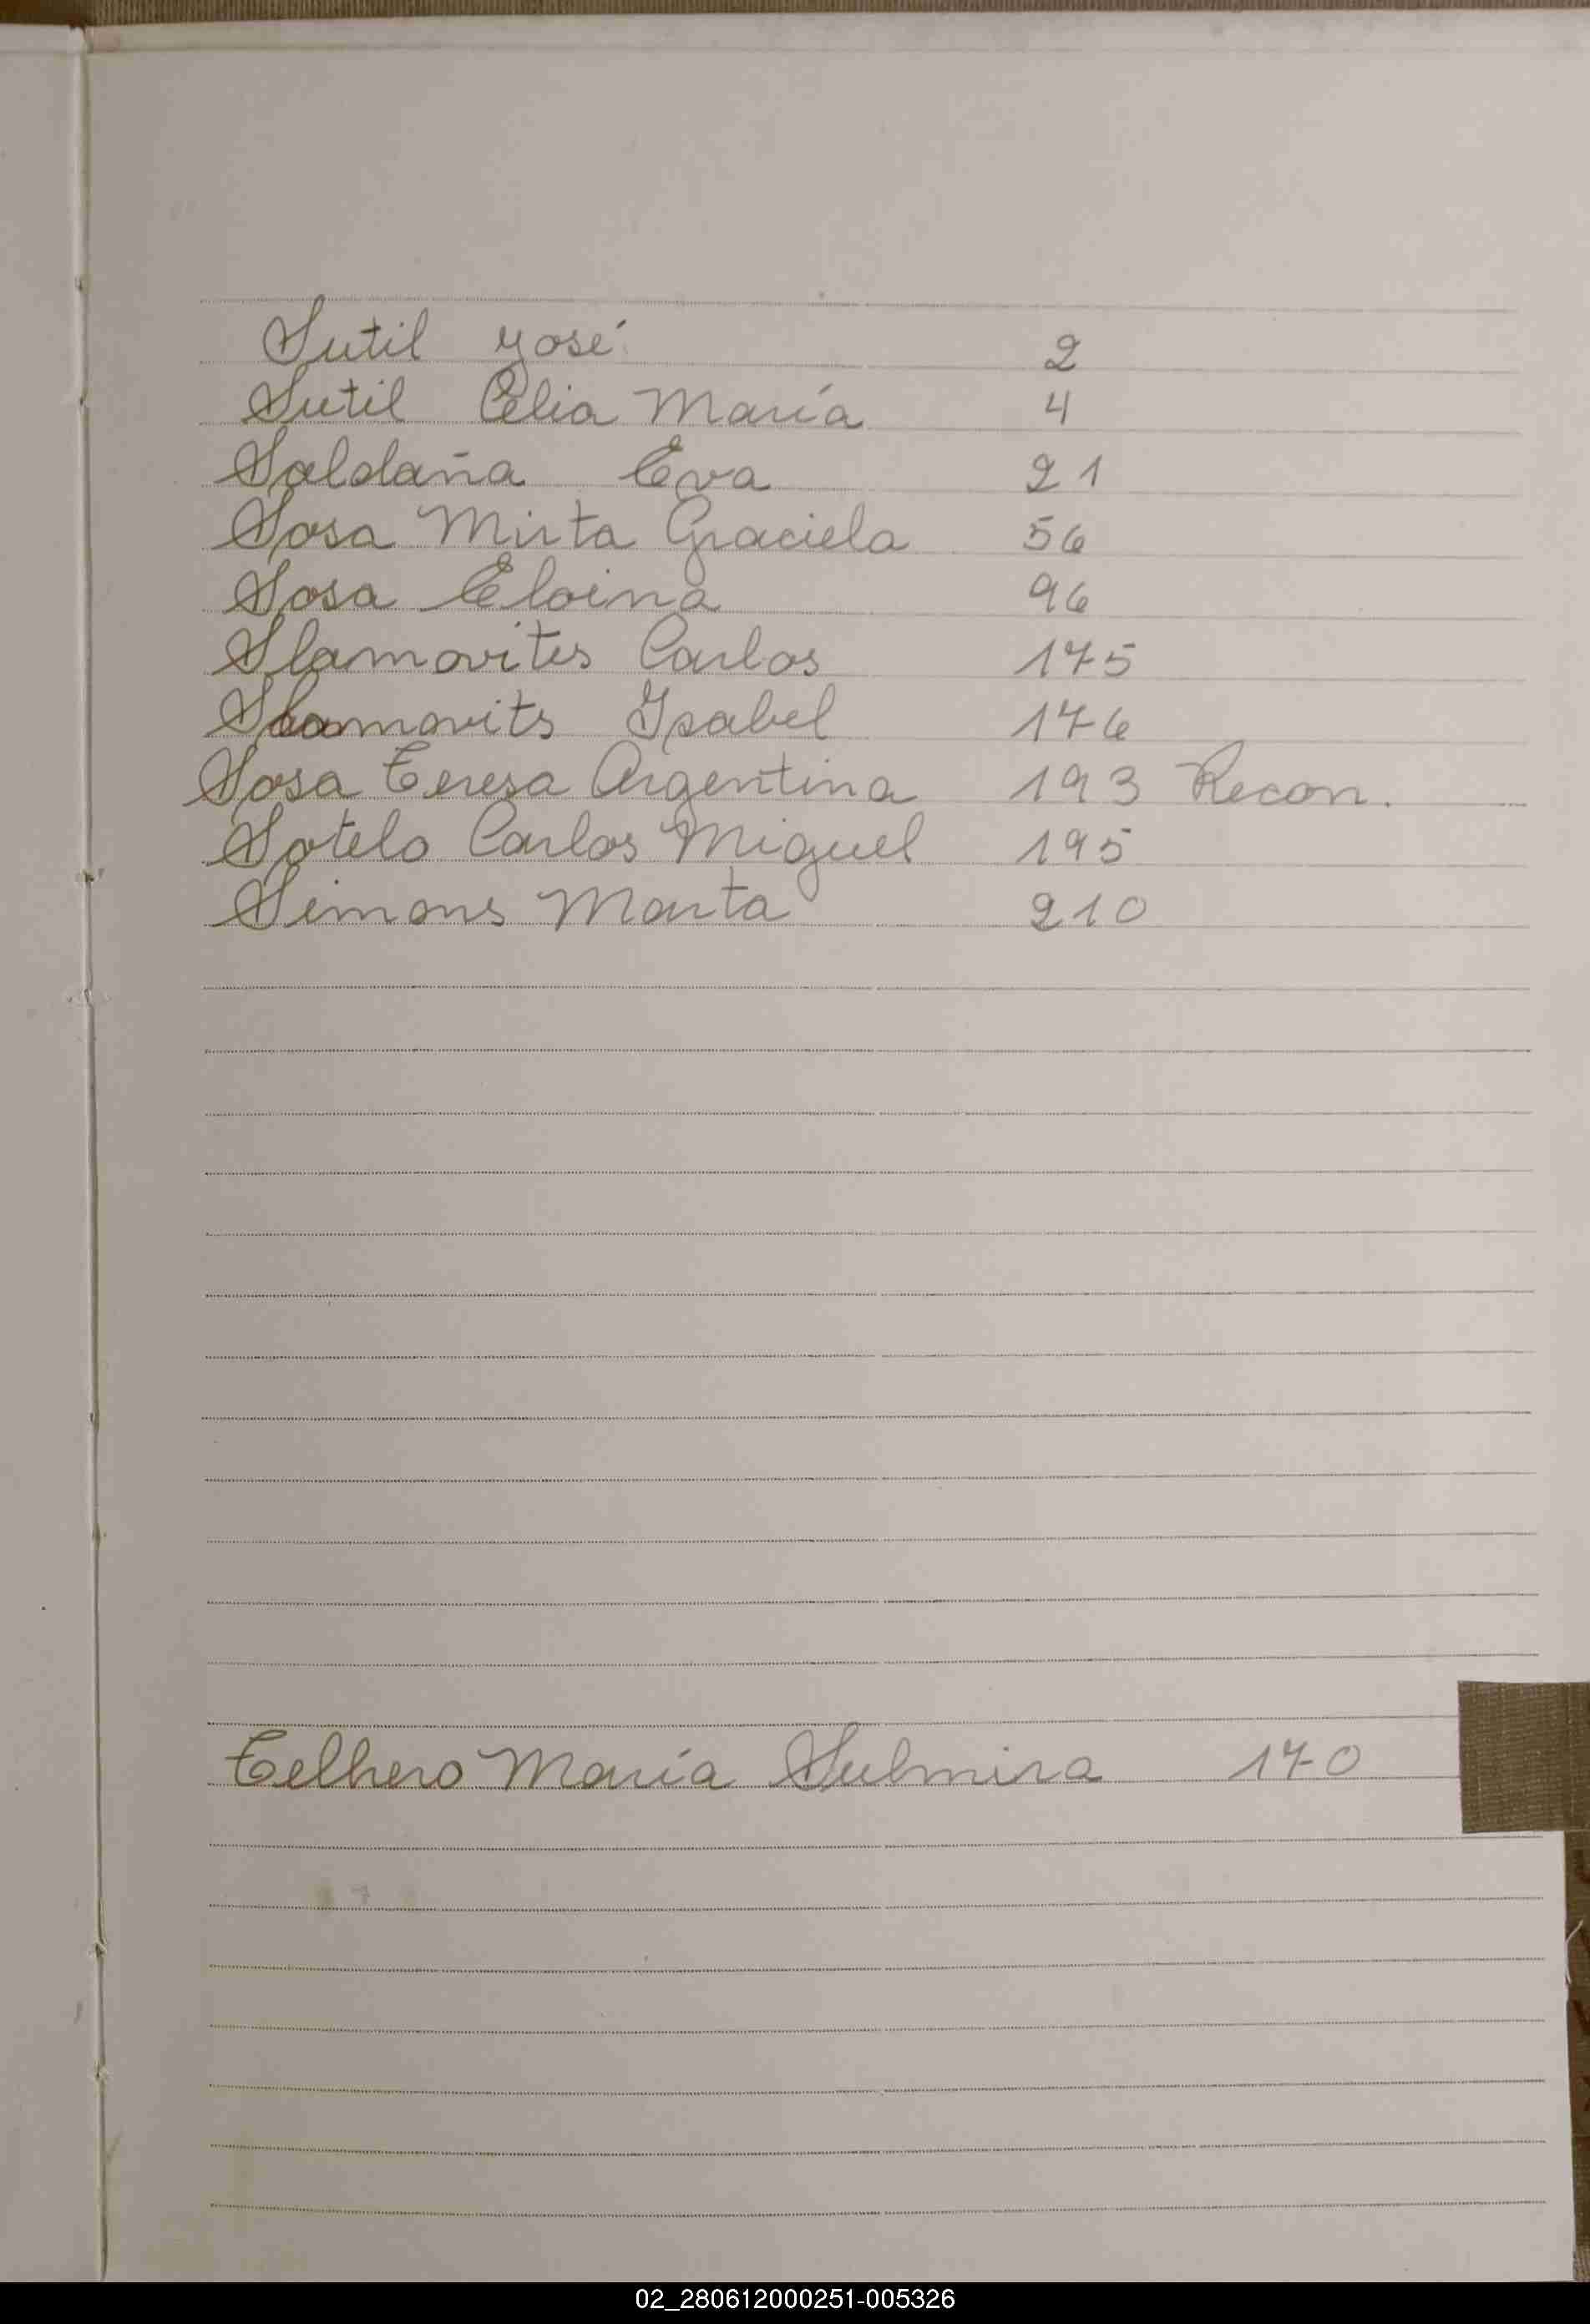 Sutil José 2
Sutil Celia María 4
Saldaña Eva 21
Sosa Mirta Graciela 56
Sosa Eloina 96
Slamovites Carlos 175
Slamovits Isabel 176
Sosa Teresa Argentina 193 Recon.
Sotelo Carlos Miguel 195
Simons Marta 210
Telhero María Sulmira 170
02_280612000251-005326